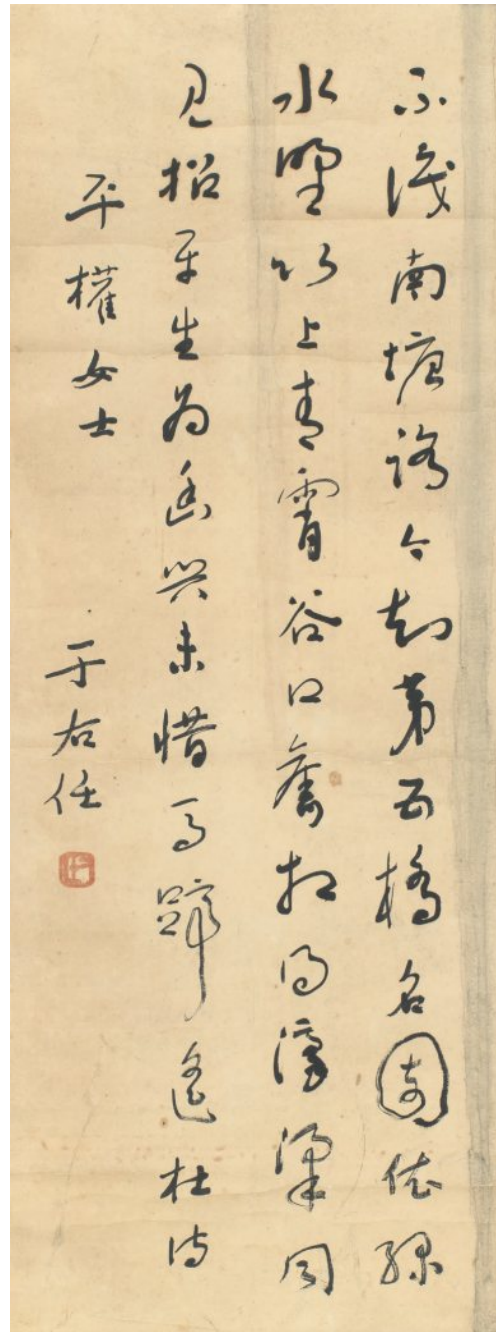 不識南塘路今知第五橋名園依綠
水野竹上青霄谷口舊相得濠梁同
見招平生為幽興未惜馬蹄遙杜詩
平權女士
于右任